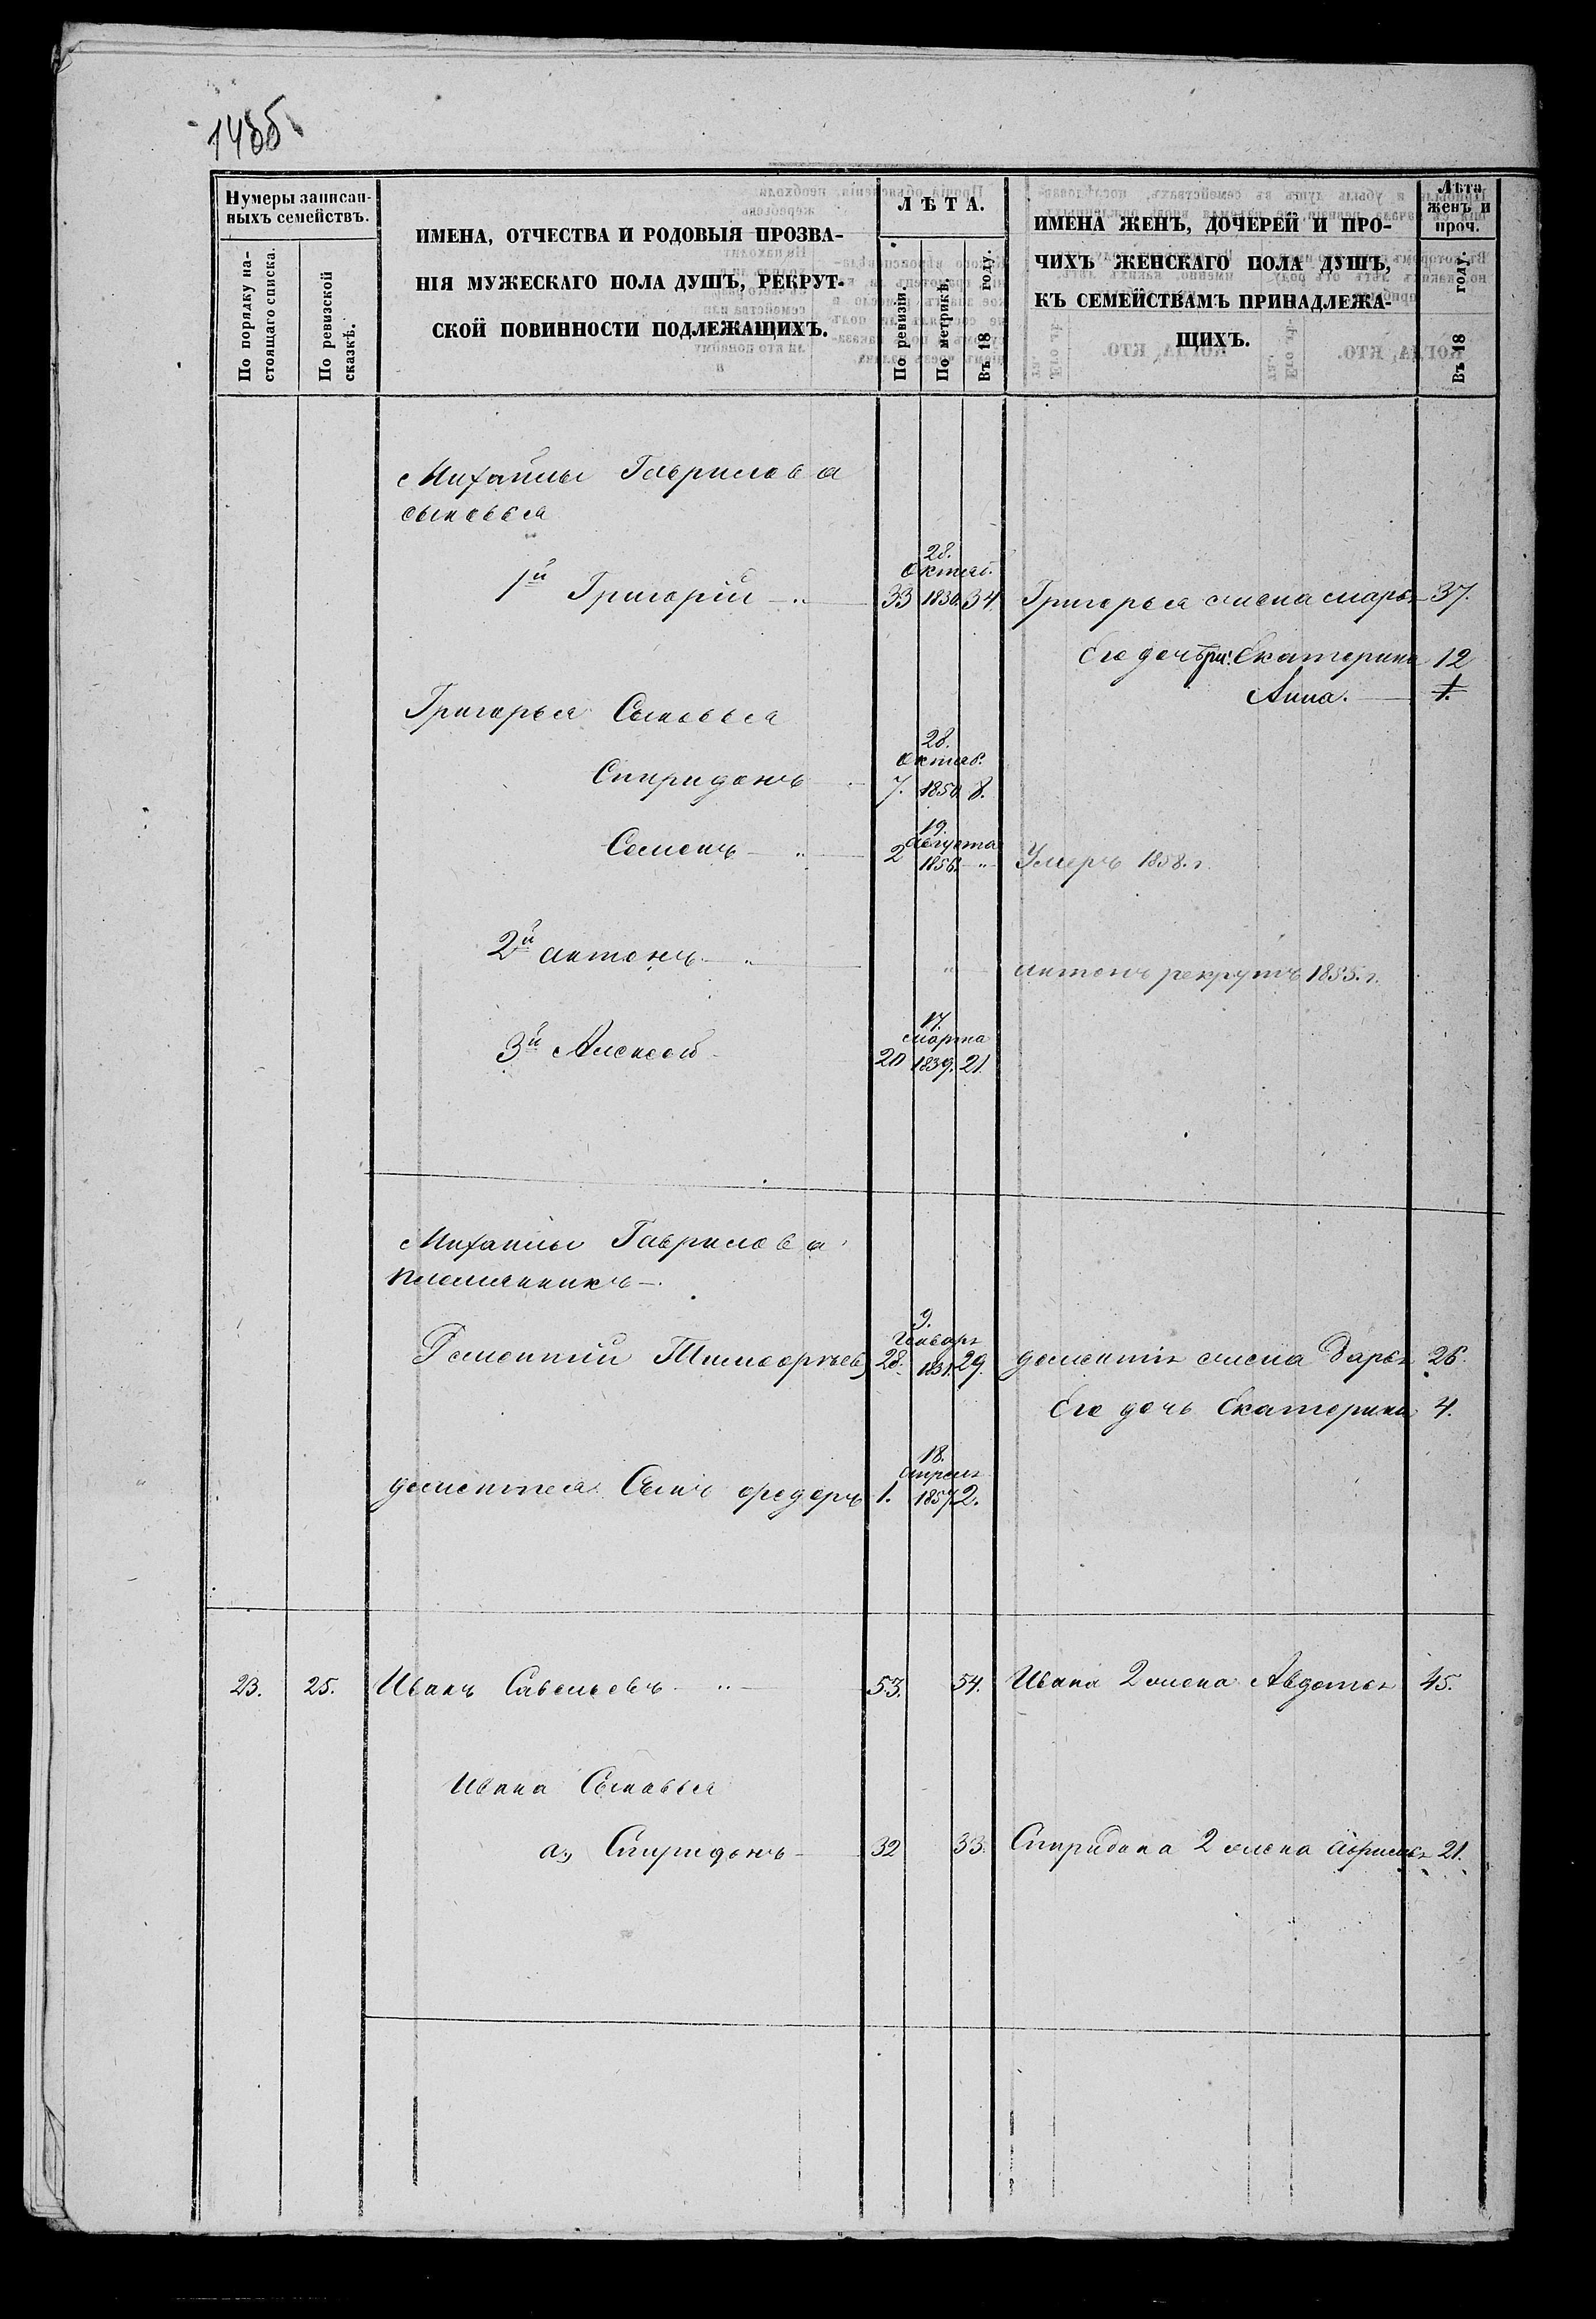 1485
Нумеры записан-
ныхъ семействъ.
По порядку на-
стоящаго списка.
По ревизской
сказкѣ.
ИМЕНА, ОТЧЕСТВА И РОДОВЫЯ ПРОЗВА-
НІЯ МУЖЕСКАГО ПОЛА ДУШЪ, РЕКРУТ-
СКОЙ ПОВИННОСТИ ПОДЛЕЖАЩИХЪ.
ЛѢТА.
По ревизіи.
По метрикѣ.
Въ 18 году.
ИМЕНА ЖЕНЪ, ДОЧЕРЕЙ И ПРО-
ЧИХЪ ЖЕНСКАГО ПОЛА ДУШЪ,
КЪ СЕМЕЙСТВАМЪ ПРИНАДЛЕЖА-
ЩИХЪ.
Лѣта
женъ и
проч.
Въ 18 году.
Михайлы Гаврилова
сыновья
28.
Октяб.
1й Григорій 33 1830. 34 Григорья жена Марья 37.
Его дочери: Екатерина 12
Анна. 1.
Григорья Сыновья
28.
Октяб.
Спиридонъ 7. 1850. 8.
19.
Августа
Семенъ 2 1856. Умеръ 1858. г.
2й Антонъ Антонъ рекрутъ 1855. г.
17.
Марта
3й Алексей 20 1839. 21.
Михайлы Гаврилова
племянникъ
9.
Генваря
Дементий Тимоѳеевъ 28. 1831. 29. Дементія жена Дарья 26.
Его дочь Екатерина 4.
18.
Апреля
Дементья Сынъ Ѳедоръ 1. 1857. 2.
23. 25. Иванъ Савельевъ 53. 54. Ивана 2 жена Авдотья 45.
Ивана Сыновья
а., Спиридонъ 32 33. Спиридона 2 жена 21.